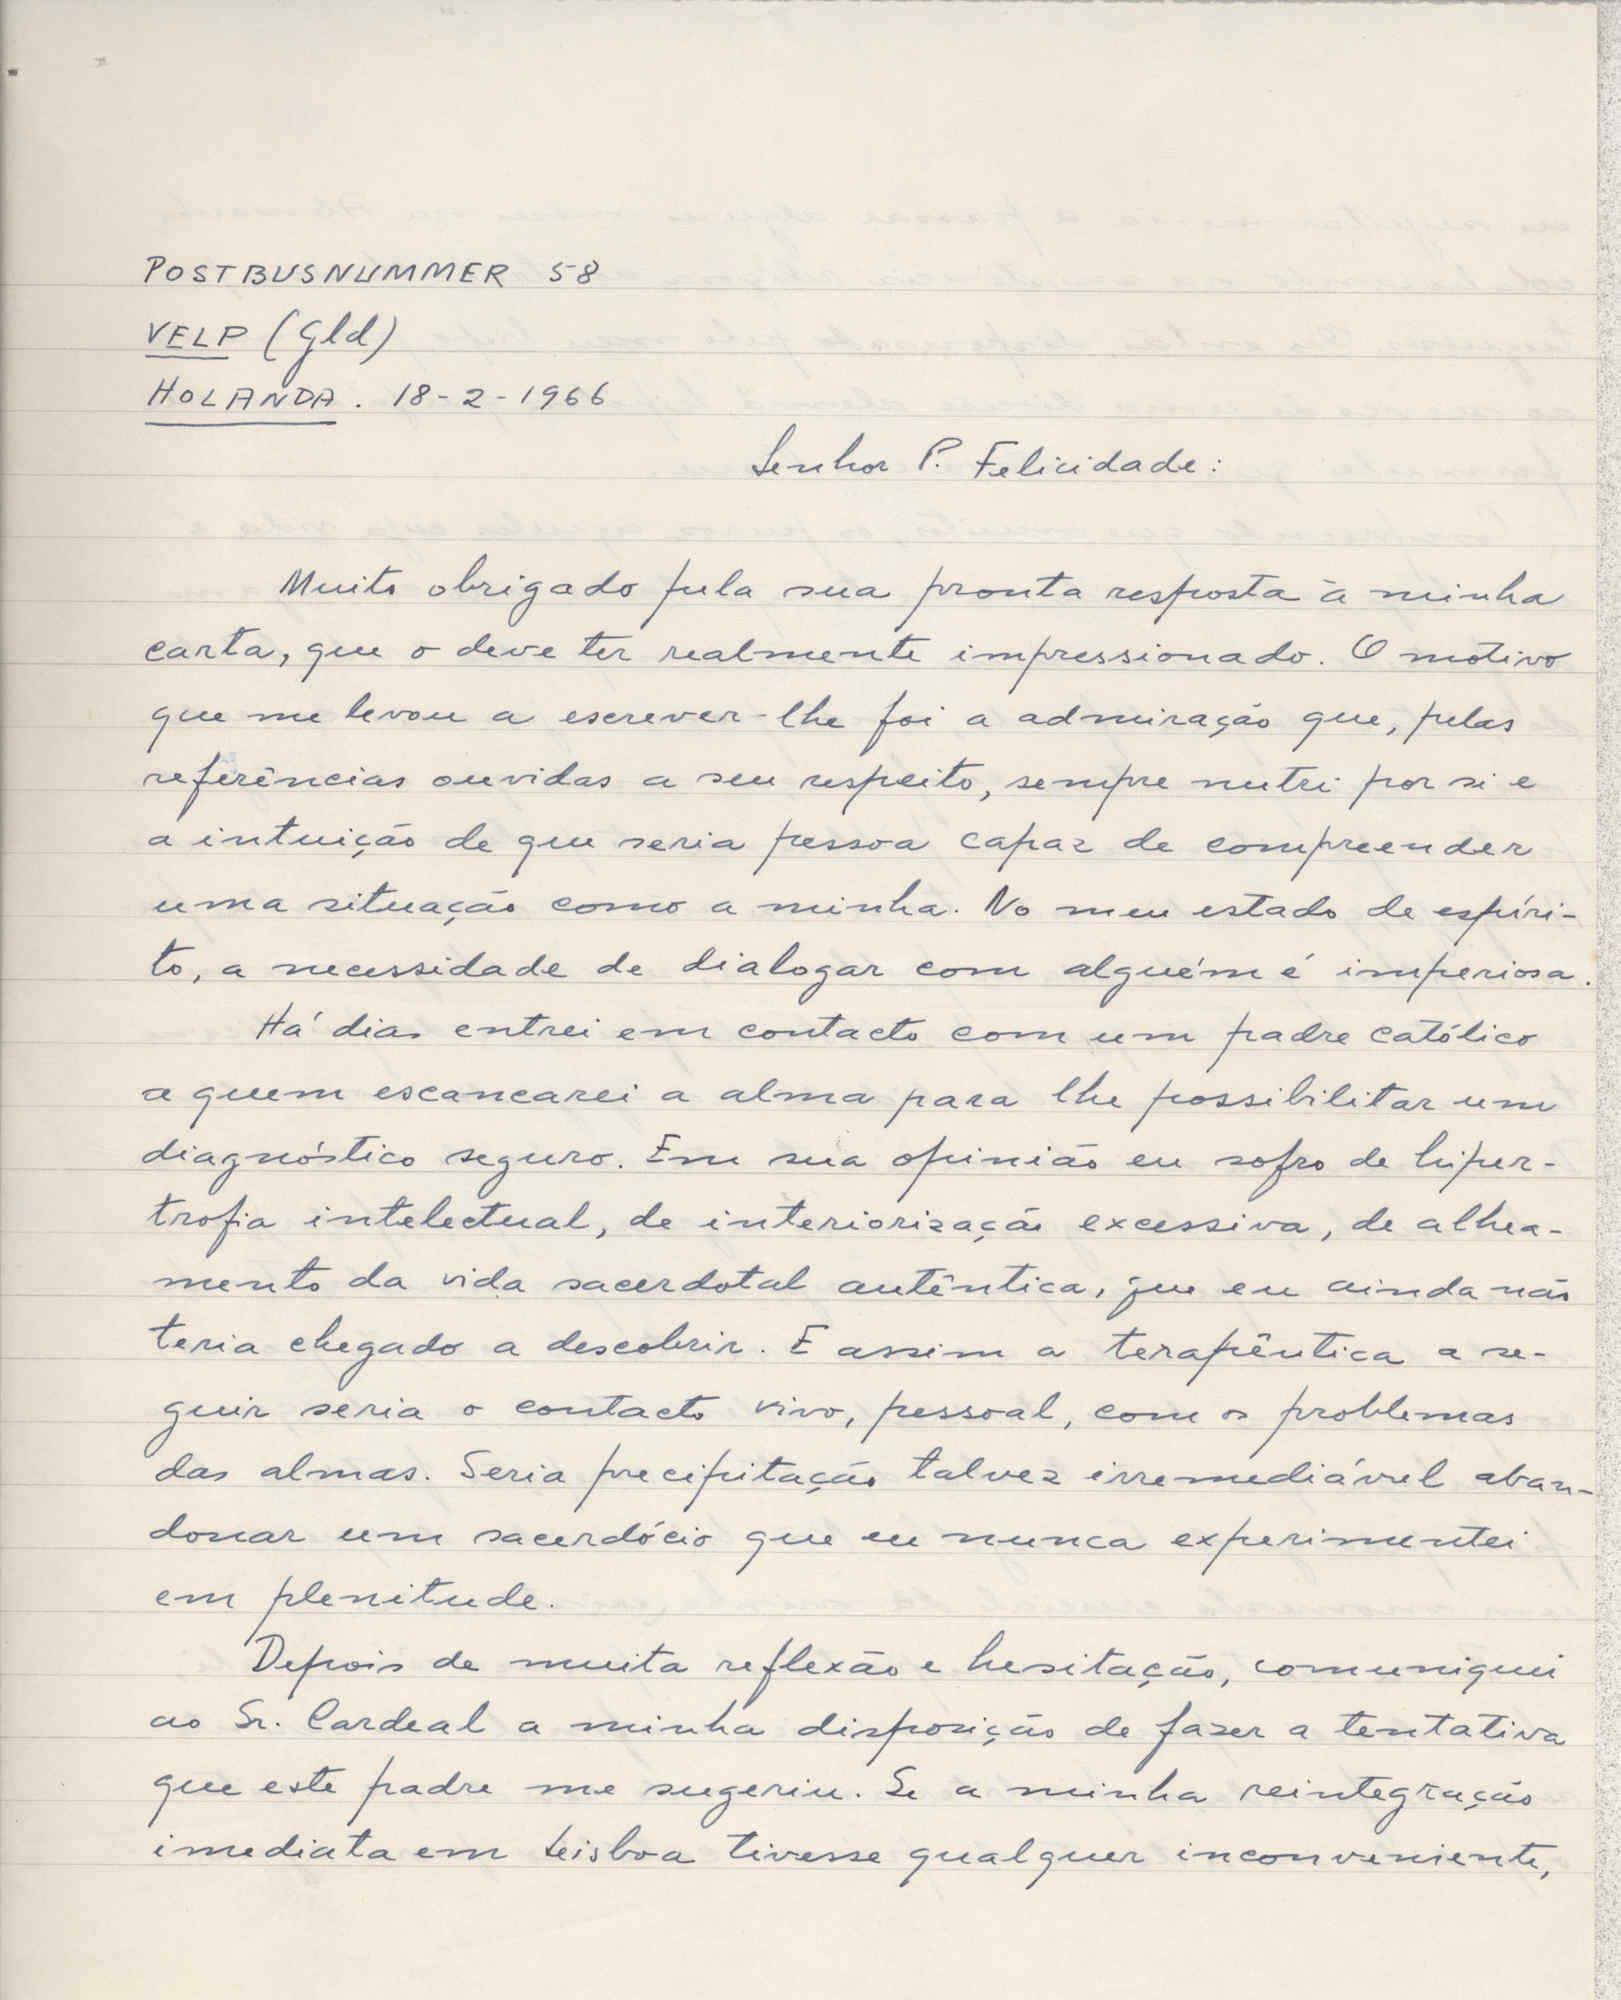 POSTBUSNUMMER 58
VELP (Gld)
HOLANDA. 18-2-1966
Senhor P. Felicidade:
Muito obrigado pela sua pronta resposta à minha
carta, que o deve ter realmente impressionado. O motivo
que me levou a escrever-lhe foi a admiração que, pelas
referências ouvidas a seu respeito, sempre nutri por si e
a intuição de que seria pessoa capaz de compreender
uma situação como a minha. No meu estado de espíri-
to, a necessidade de dialogar com alguém é imperiosa.
Há dias entrei em contacto com um padre católico
a quem escancarei a alma para lhe possibilitar um
diagnóstico seguro. Em sua opinião eu sofro de hiper-
trofia intelectual, de interiorização excessiva, de alhea-
mento da vida sacerdotal autêntica, que eu ainda não
teria chegado a descobrir. E assim a terapêutica a se-
guir seria o contacto vivo, pessoal, com os problemas
das almas. Seria precipitação talvez irremediável aban-
donar um sacerdócio que eu nunca experimentei
em plenitude.
Depois de muita reflexão e hesitação, comuniquei
ao Sr. Cardeal a minha disposição de fazer a tentativa
que este padre me sugeriu. Se a minha reintegração
imediata em Lisboa tivesse qualquer inconveniente,